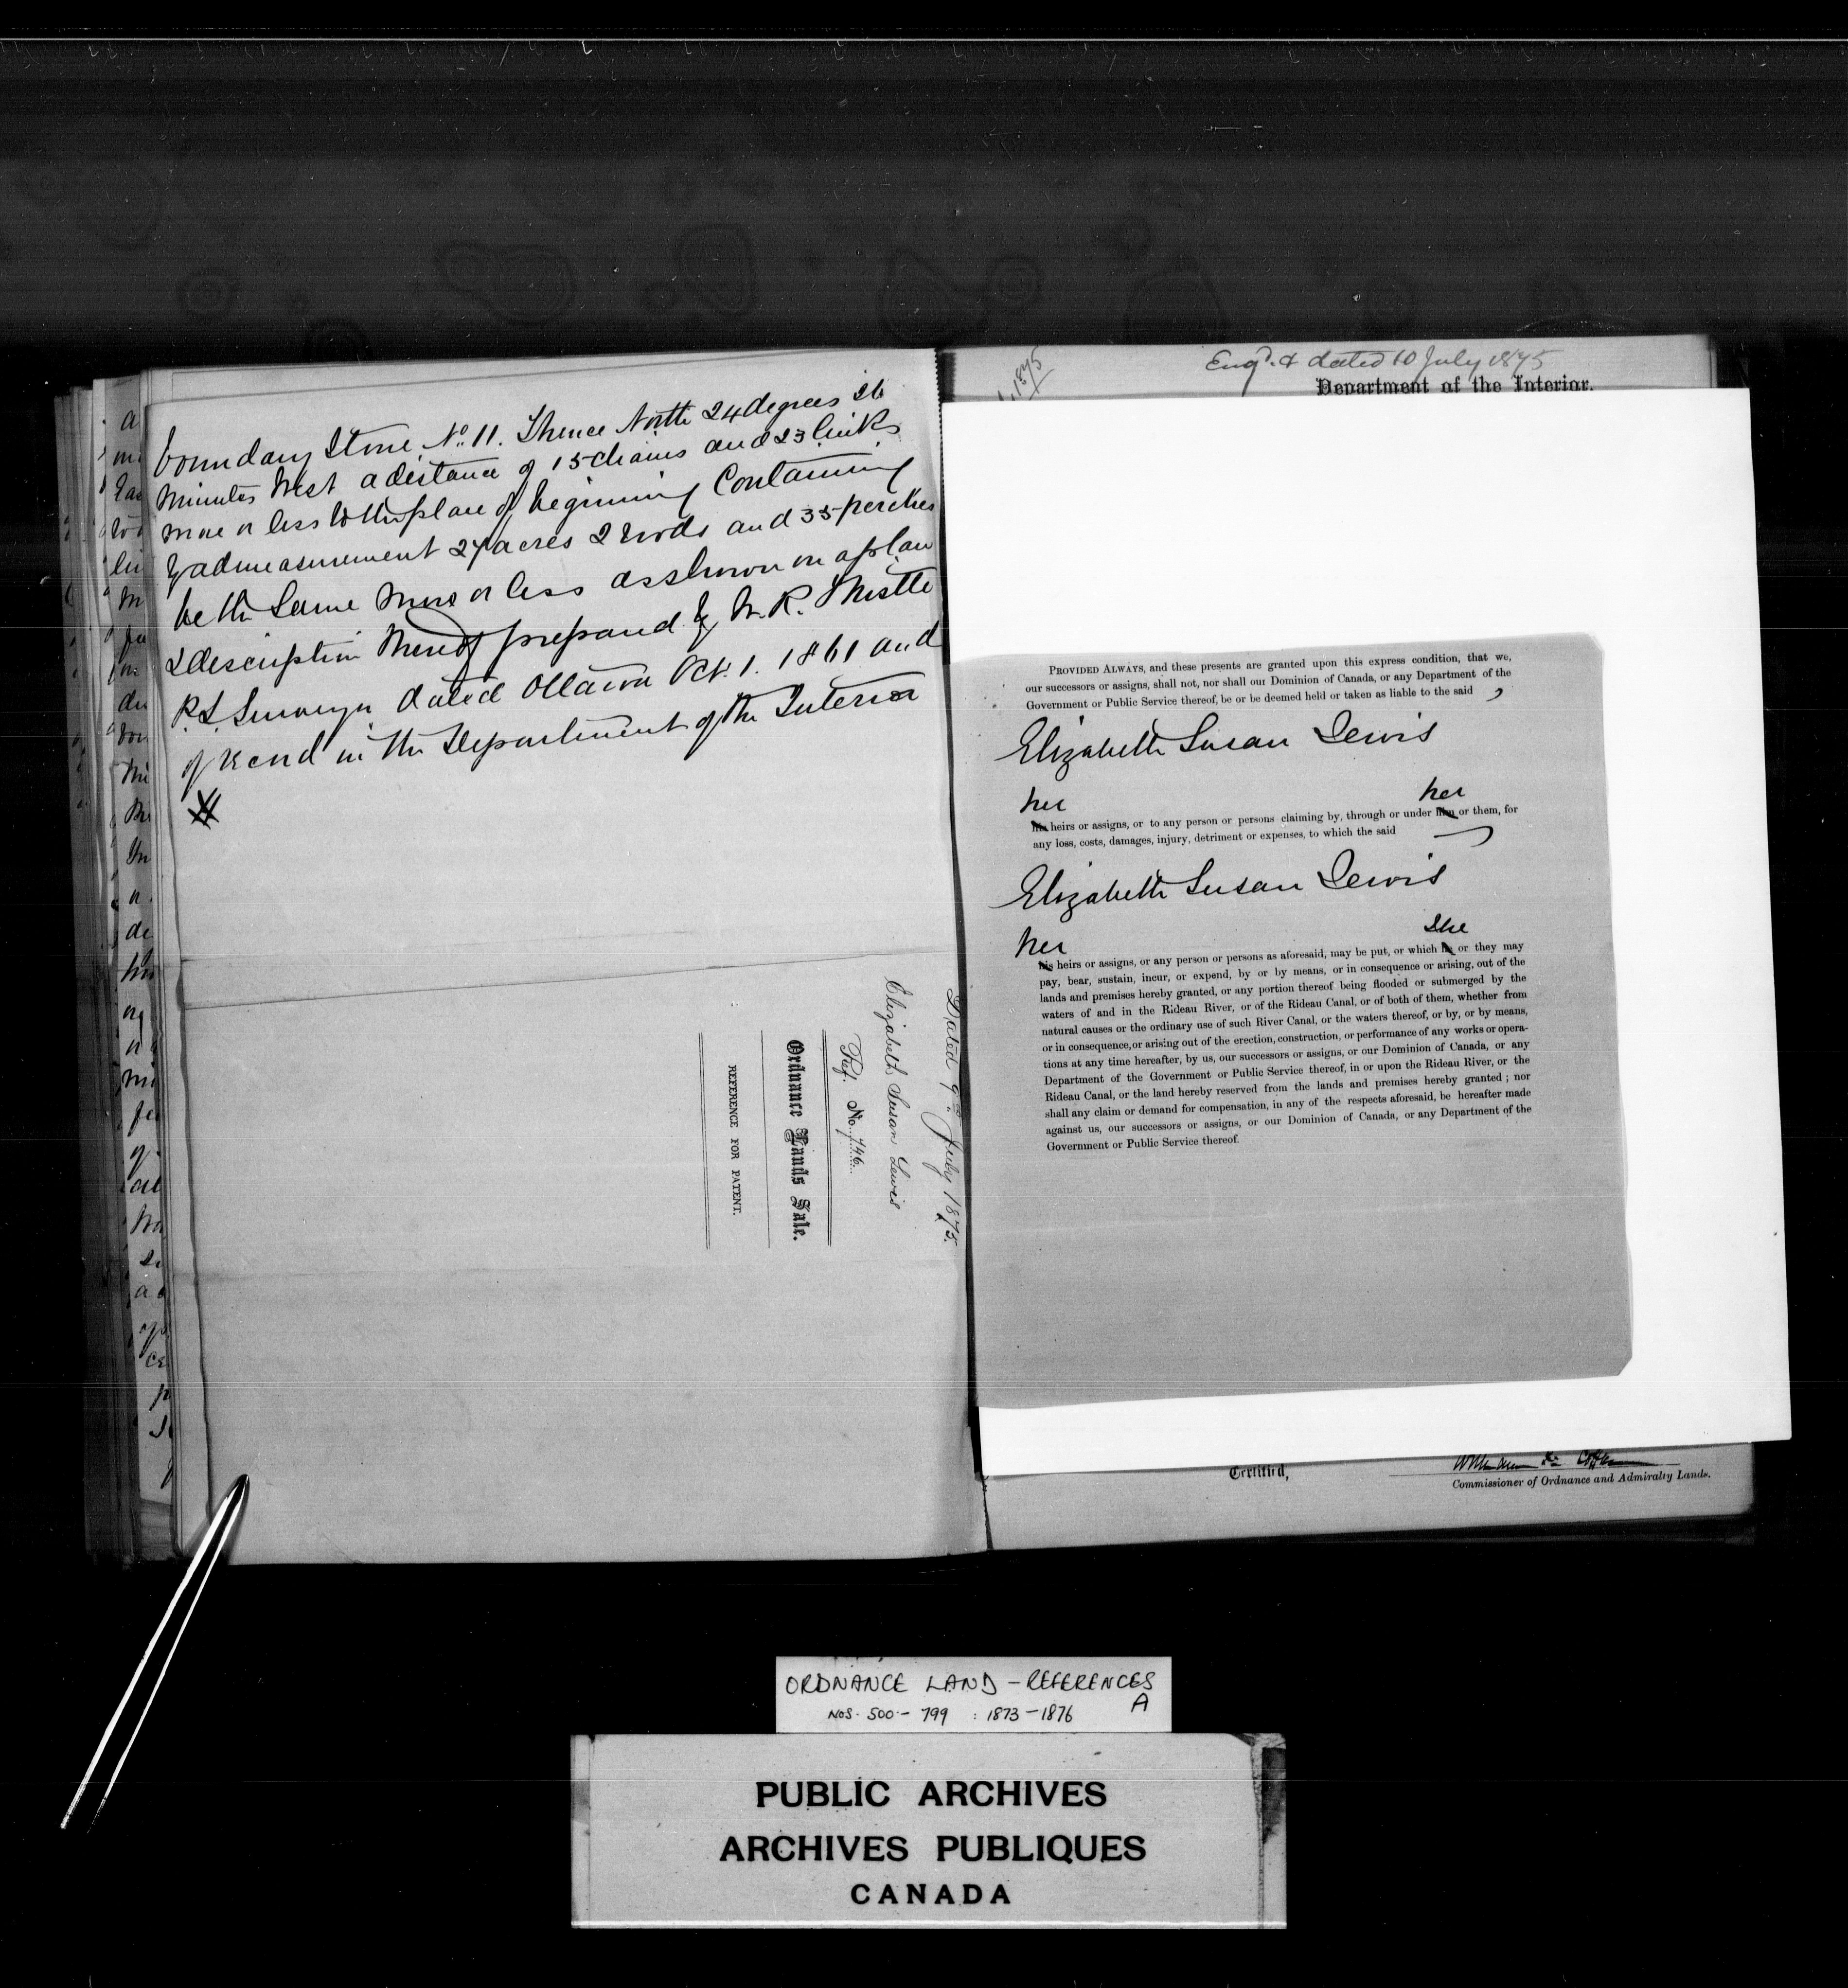 boundary Stone No. 11. Thence North 24 degrees 26
Minutes West a distance of 15 chains and 23 links
more or less to the place of beginning Containing
by admeasurement 27 acres 2 roods and 35 perches
be the same more or less as shown on a plan
& description thereof prepared by W. R. Thistle
P. L. Surveyor dated Ottawa Oct. 1. 1861 and
of record in the Department of the Interior
Dated 9th July 1875.
Elizabeth Susan Lewis
Ref. No. 746
Ordnance Lands Sale.
REFERENCE FOR PATENT.
1875
Engd. & dated 10 July 1875
Department of the Interior.
PROVIDED ALWAYS, and these presents are granted upon this express condition, that we,
our successors or assigns, shall not, nor shall our Dominion of Canada, or any Department of the
Government or Public Service thereof, be or be deemed held or taken as liable to the said
Elizabeth Susan Lewis
her her
his heirs or assigns, or to any person or persons claiming by, through or under him or them, for
any loss, costs, damages, injury, detriment or expenses, to which the said
Elizabeth Susan Lewis
her She
his heirs or assigns, or any person or persons as aforesaid, may be put, or which he or they may
pay, bear, sustain, incur, or expend, by or by means, or in consequence or arising, out of the
lands and premises hereby granted, or any portion thereof being flooded or submerged by the
waters of and in the Rideau River, or of the Rideau Canal, or of both of them, whether from
natural causes or the ordinary use of such River Canal, or the waters thereof, or by, or by means,
or in consequence, or arising out of the erection, construction, or performance of any works or opera-
tions at any time hereafter, by us, our successors or assigns, or our Dominion of Canada, or any
Department of the Government or Public Service thereof, in or upon the Rideau River, or the
Rideau Canal, or the land hereby reserved from the lands and premises hereby granted ; nor
shall any claim or demand for compensation, in any of the respects aforesaid, be hereafter made
against us, our successors or assigns, or our Dominion of Canada, or any Department of the
Government or Public Service thereof.
Certified,
Commissioner of Ordnance and Admiralty Lands.
ORDNANCE LAND - REFERENCES
NOS. 500 - 799 : 1873 - 1876 A
PUBLIC ARCHIVES
ARCHIVES PUBLIQUES
CANADA